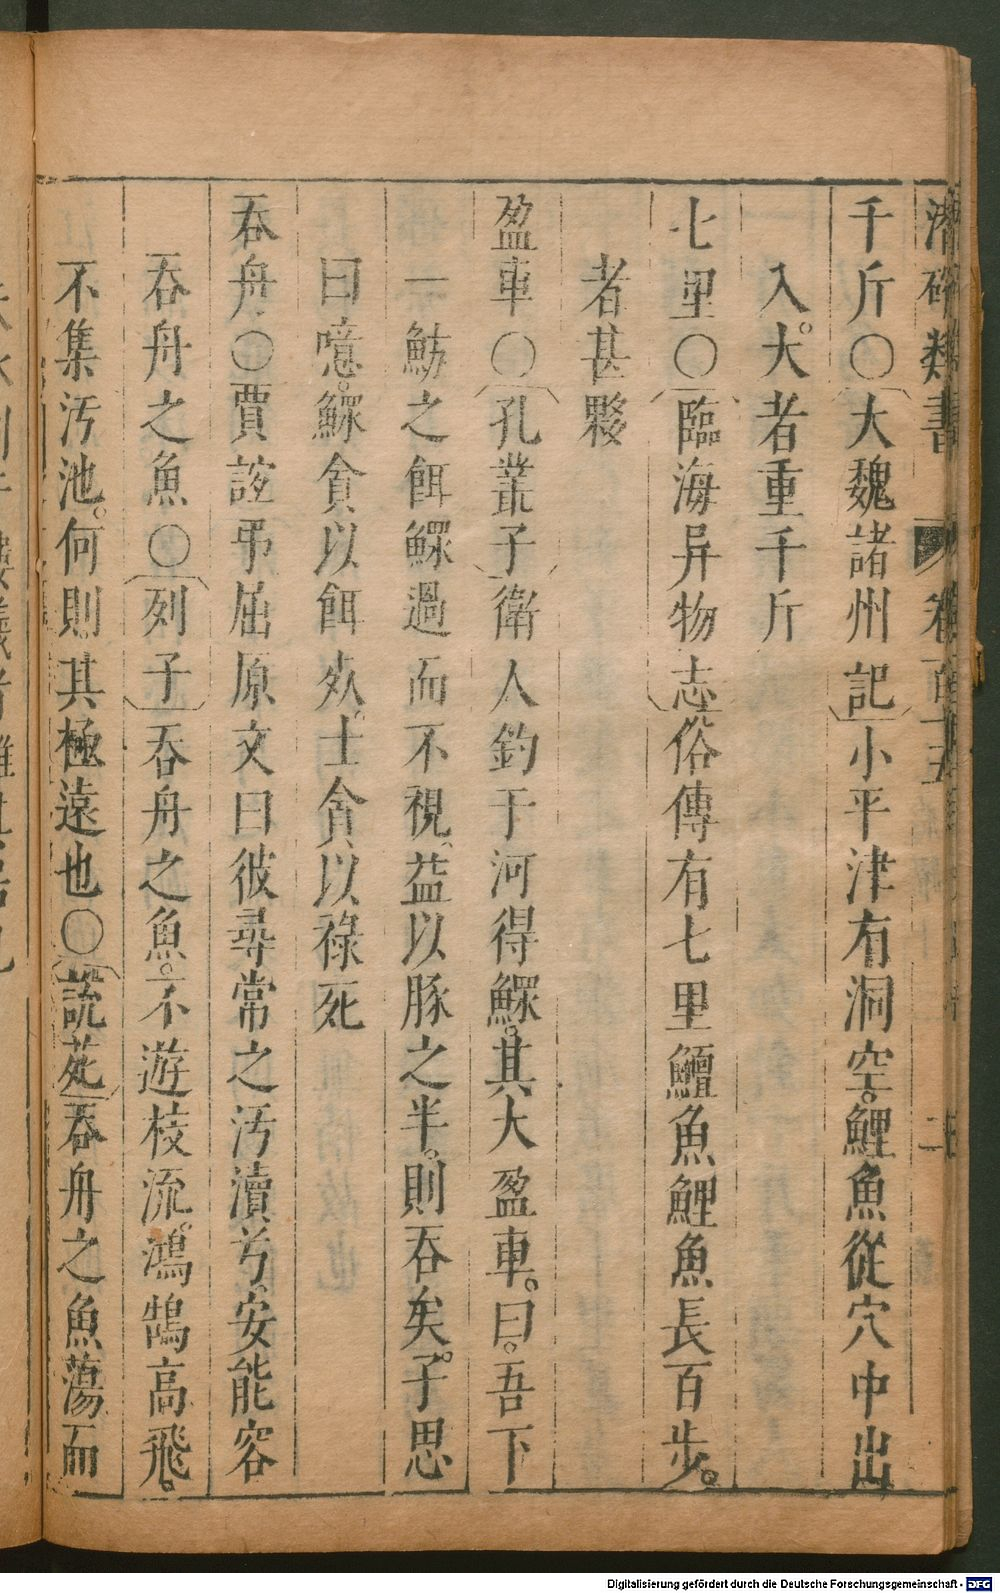 潛確類書
卷百十五
二
千斤〇大魏諸州記小平津有洞空。鯉魚從穴中出
入。大者重千斤
七里〇臨海異物志俗傳有七里鱣魚鯉魚長百步。
者甚夥
盈車〇孔叢子衛人釣于河得鰥。其大盈車。曰。吾下
一魴之餌鰥過而不視。益以豚之半。則吞矣。子思
曰噫。鰥貪以餌死。士貪以祿死
吞舟〇賈誼弔屈原文曰彼尋常之汚瀆兮。安能容
吞舟之魚〇列子吞舟之魚。不遊枝流。鴻鵠高飛。
不集汚池。何則。其極遠也〇說苑吞舟之魚蕩而
Digitalisierung gefördert durch die Deutsche Forschungsgemeinschaft - DFG